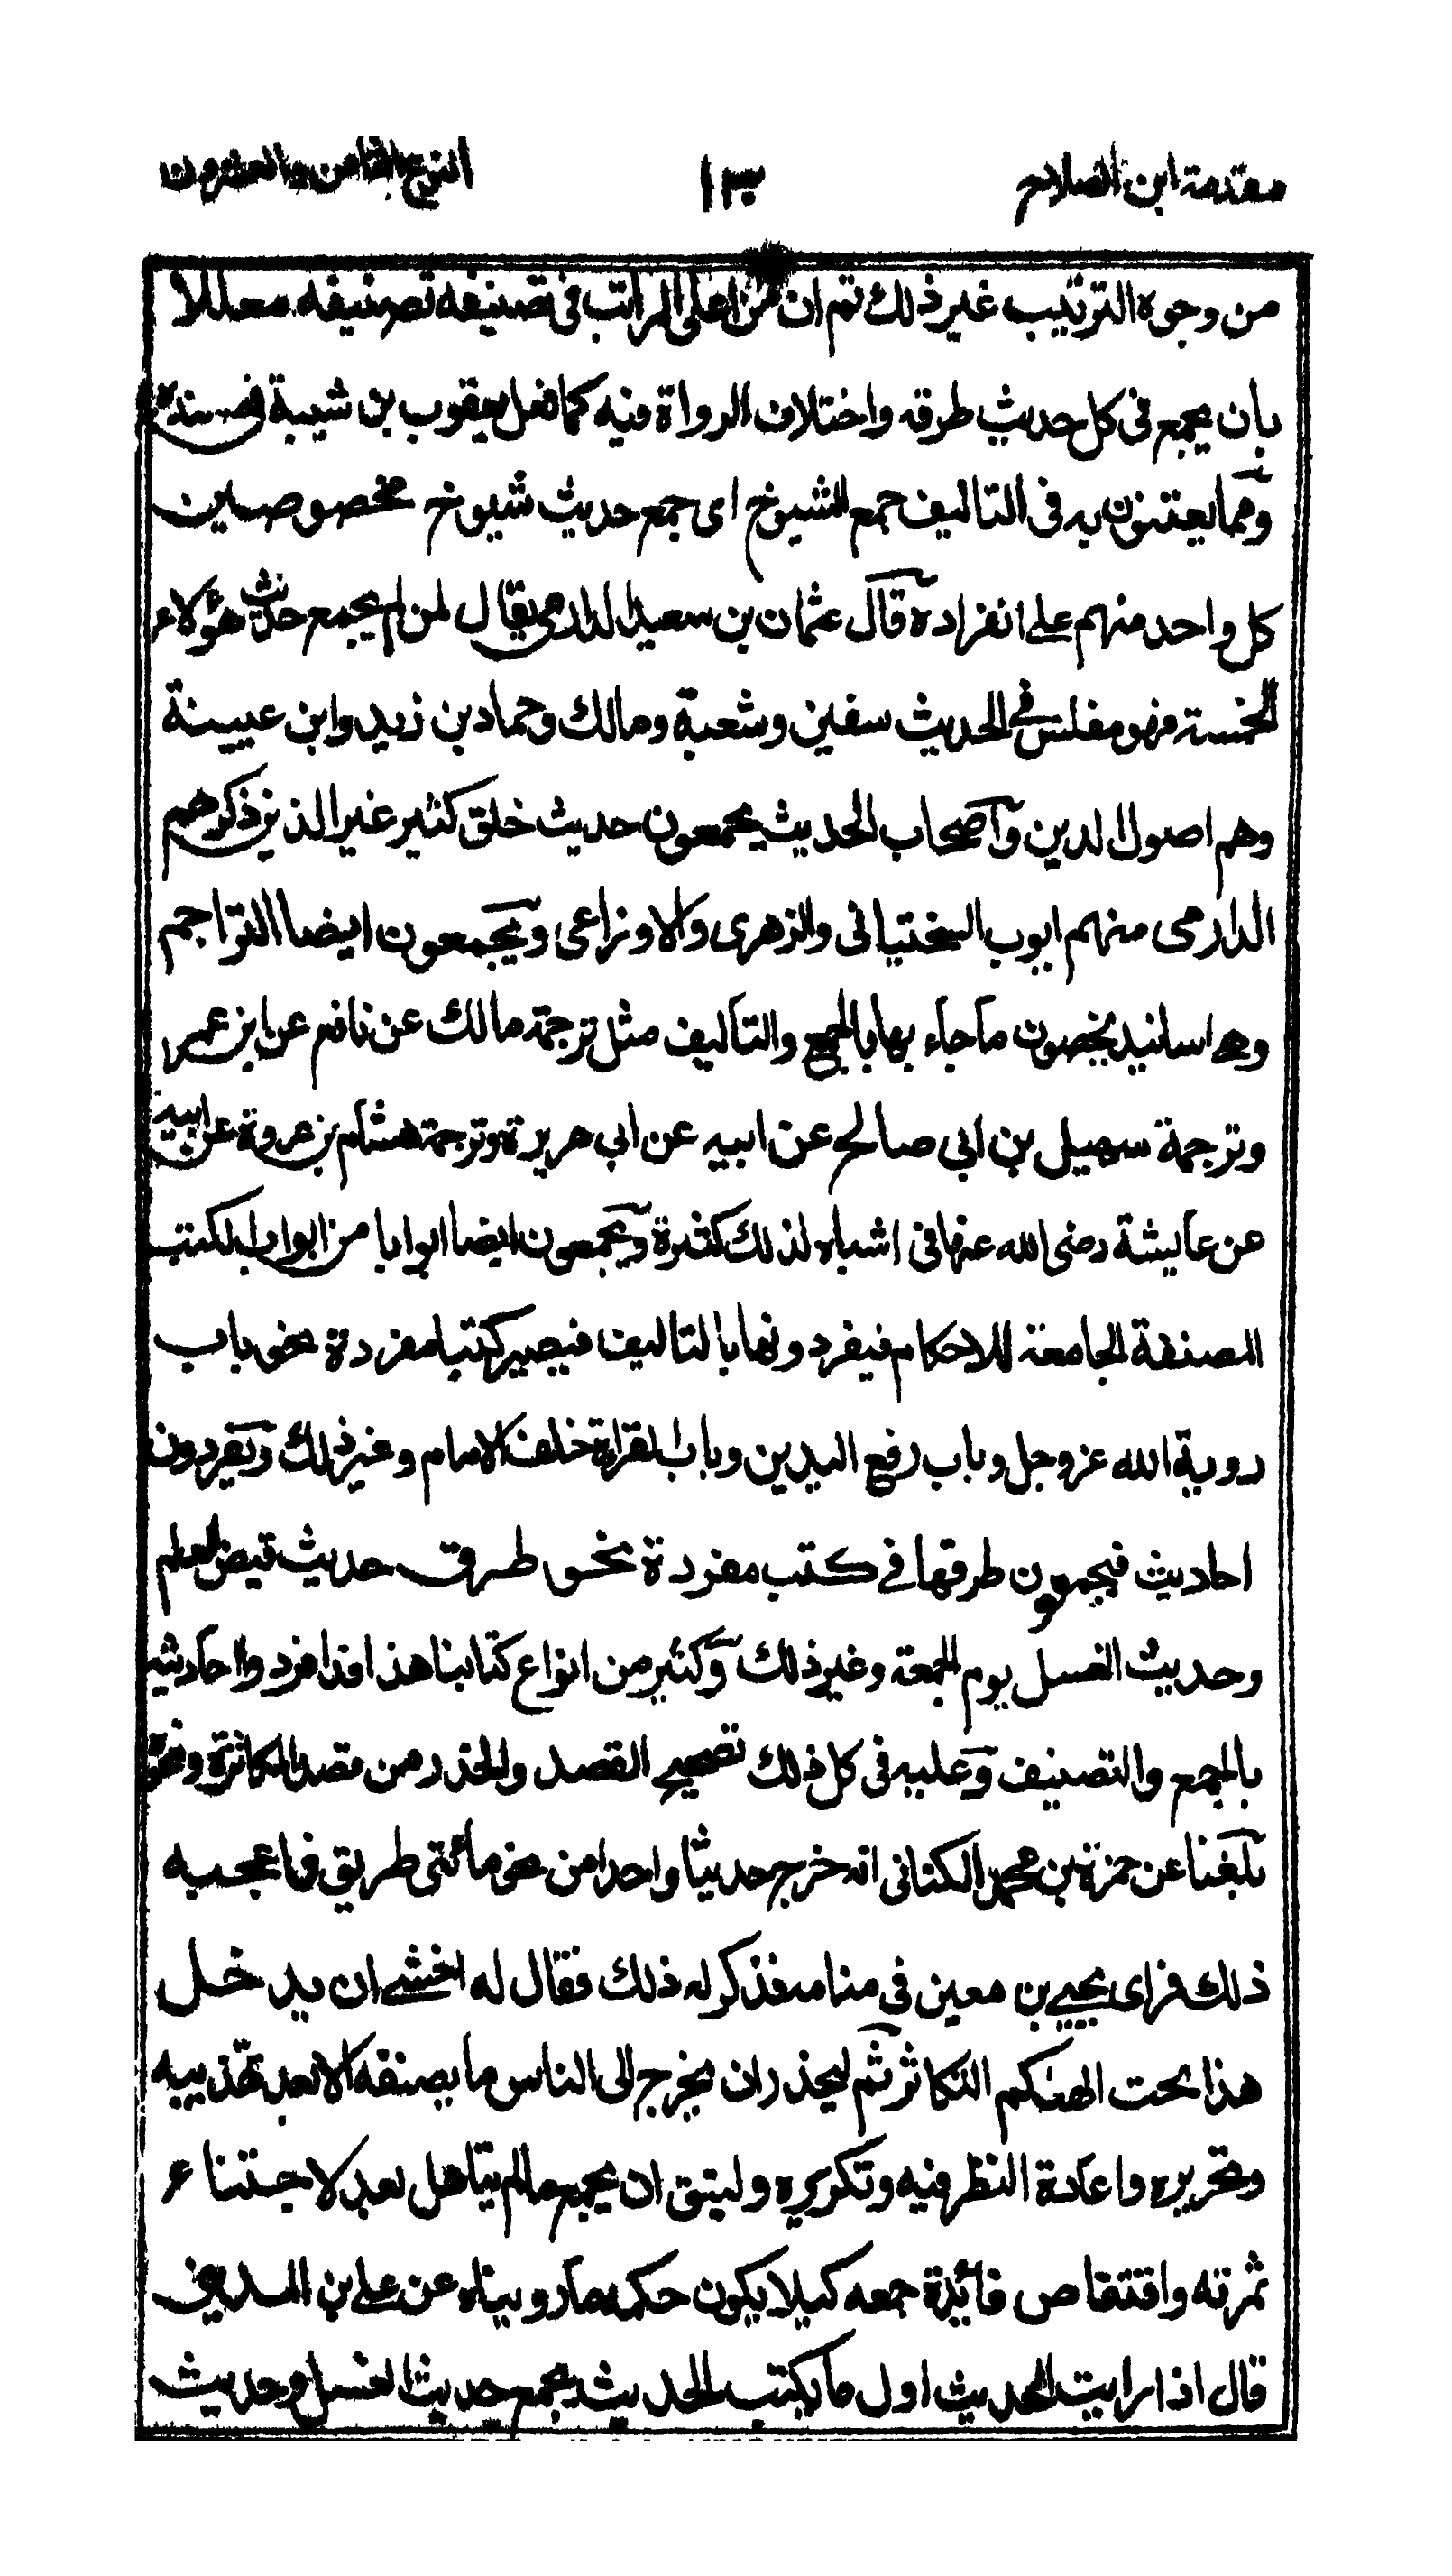 مقدمة ابن الصلاح ١٣٠ النوع الثامن والعشرون
من وجوه الترتيب غير ذلك ثم ان من اعلى المراتب فى تصنيفه تصنيفه معللا
بان يجمع فى كل حديث طرقه واختلاف الرواة فيه كما فعل يعقوب بن شيبة فى مسنده
ومما يعتنون به فى التاليف جمع الشيوخ اى جمع حديث شيوخ مخصوصين
كل واحد منهم على انفراده قال عثمان بن سعيد الدارمى يقال لمن لم يجمع حديث هؤلاء
الخمسة فهو مفلس فى الحديث سفين وشعبة ومالك وحماد بن زيد وابن عيينة
وهم اصول الدين واصحاب الحديث يجمعون حديث خلق كثير غير الذين ذكرهم
الدارمى منهم ايوب السختيانى والزهرى والاوزاعى ويجمعون ايضا التراجم
وهى اسانيد يخصون ما جاء بها بالجمع والتاليف مثل ترجمة مالك عن نافع عن ابن عمر
وترجمة سهيل بن ابى صالح عن ابيه عن ابى هريرة وترجمة هشام بن عروة عن ابيه
عن عايشة رضى الله عنها فى اشباه لذلك كثيرة ويجمعون ايضا ابوابا من ابواب الكتب
المصنفة الجامعة للاحكام فيفردونها بالتاليف فيصير كتبا مفردة نحو باب
روية الله عزوجل وباب رفع اليدين وباب القراءة خلف الامام وغير ذلك ويفردون
احاديث فيجمعون طرقها فى كتب مفردة نحو طرق حديث قبض العلم
وحديث الغسل يوم الجمعة وغير ذلك وكثير من انواع كتابنا هذا قد افردوا احاديثه
بالجمع والتصنيف وعليه فى كل ذلك تصحيح القصد والحذر من قصد المكاثرة ونحوه
بلغنا عن حمزة بن محمد الكنانى انه خرج حديثا واحدا من نحو مائتى طريق فاعجبه
ذلك فراى يحيى بن معين فى منامه فذكر له ذلك فقال له اخشى ان يدخل
هذا تحت الهكم التكاثر ثم ليحذر ان يخرج الى الناس ما يصنفه الا بعد تهذيبه
وتحريره واعادة النظر فيه وتكريره وليتق ان يجمع مالم يتاهل بعد لاجتناء
ثمرته واقتناص فائدة جمعه كيلا يكون حكمه ما رويناه عن على بن المدينى
قال اذا رايت الحدث اول ما يكتب الحديث يجمع حديث الغسل وحديث